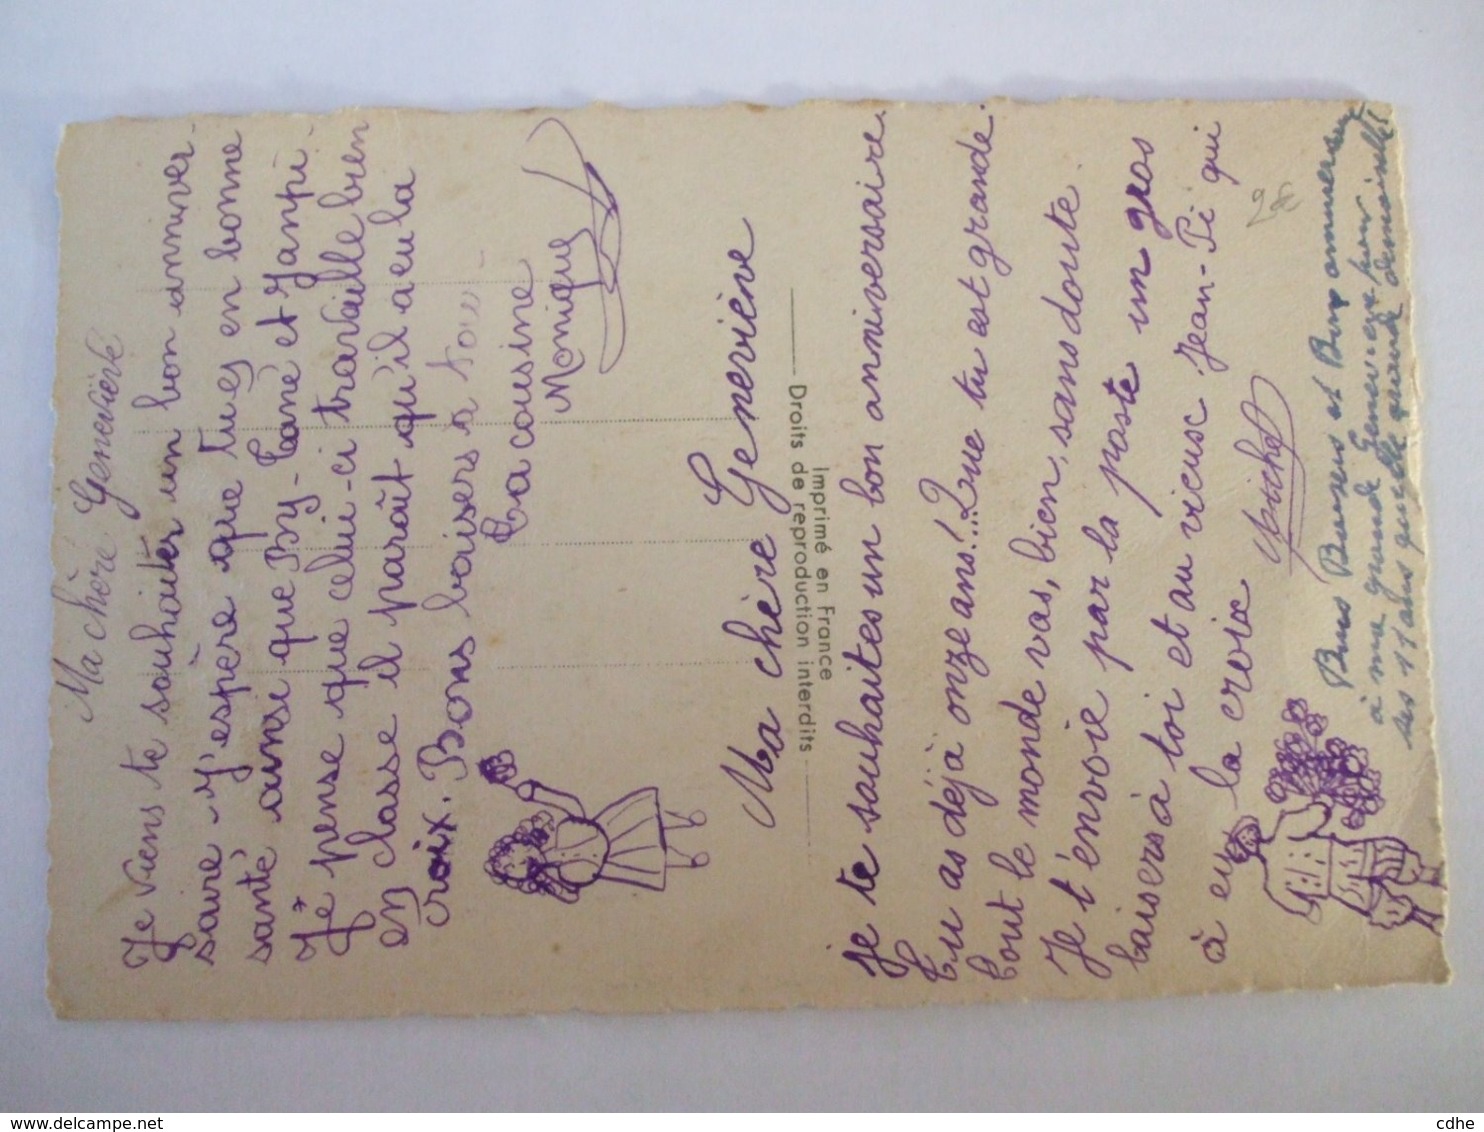 Ma chère Geneviève
Je viens te souhaiter un bon anniver-
saire J'espère que tu es en bonne
santé ainsi que By-Tané et Janpi.
Je pense que celui-ci travaille bien
en classe il paraît qu'il a eu la
croix. Bons baisers à tous
Ta cousine
Monique
Ma chère Geneviève
Droits de reproduction interdits
Imprimé en France
je te souhaites un bon anniversaire.
Tu as déjà onze ans!... Que tu est grande.
Tout le monde vas, bien, sans doute.
Je t'envoie par la poste un gros
baisers à toi et au vieux Jean-Pi qui
à eu la croix
Michel
2€
Bons Baisers et Bons anniversaire
à ma grande Geneviève pour
ses 11 ans quelle grande demoiselle!
cdhe
delcampe.net